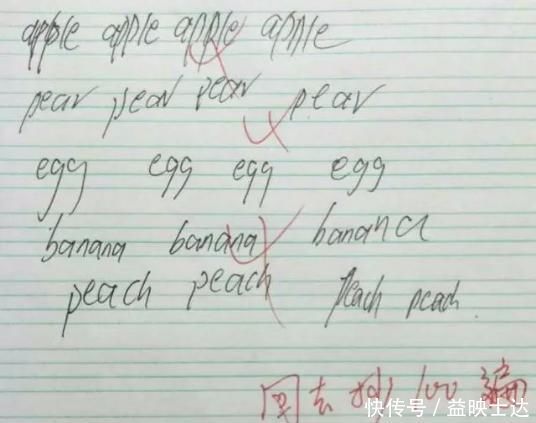 apple apple apple apple
pear pear pear pear
egg egg egg egg
banana banana banana
peach peach peach peach
回去抄100遍
快传号/益映士达